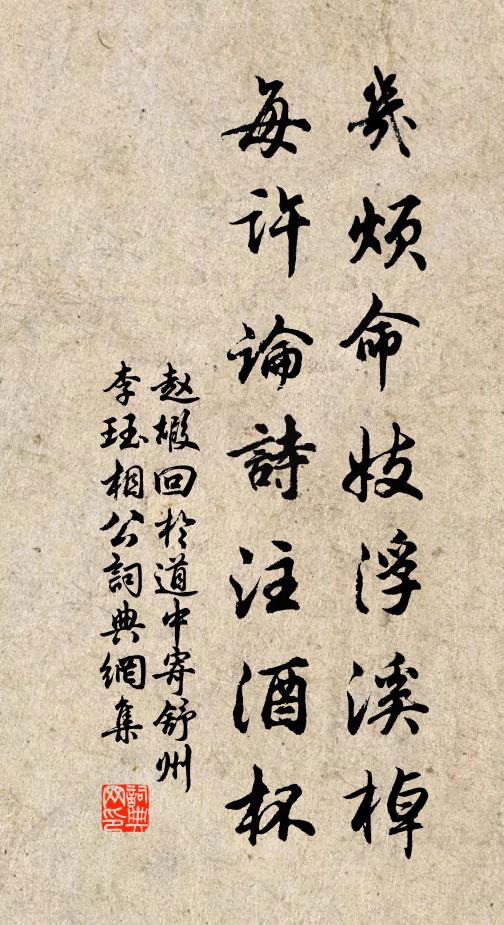 幾煩命妓浮溪棹
每許論詩注酒杯
赵嘏回於道中寄舒州
李珏相公詞典網集
詞典
网印